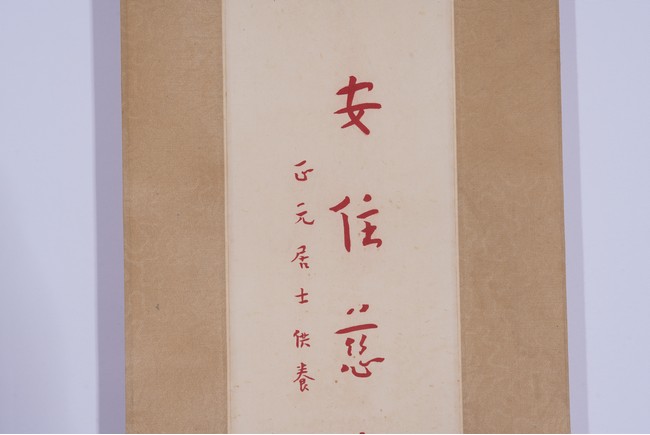 安住慈
正元居士供養